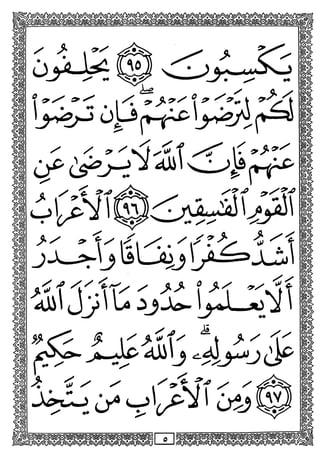 يَكْسِبُونَ ٩٥ يَحْلِفُونَ
لَكُمْ لِتَرْضَوْا۟ عَنْهُمْ ۖ فَإِن تَرْضَوْا۟
عَنْهُمْ فَإِنَّ ٱللَّهَ لَا يَرْضَىٰ عَنِ
ٱلْقَوْمِ ٱلْفَٰسِقِينَ ٩٦ ٱلْأَعْرَابُ
أَشَدُّ كُفْرًا وَنِفَاقًا وَأَجْدَرُ
أَلَّا يَعْلَمُوا۟ حُدُودَ مَآ أَنزَلَ ٱللَّهُ
عَلَىٰ رَسُولِهِۦ ۗ وَٱللَّهُ عَلِيمٌ حَكِيمٌ
٩٧ وَمِنَ ٱلْأَعْرَابِ مَن يَتَّخِذُ
٥